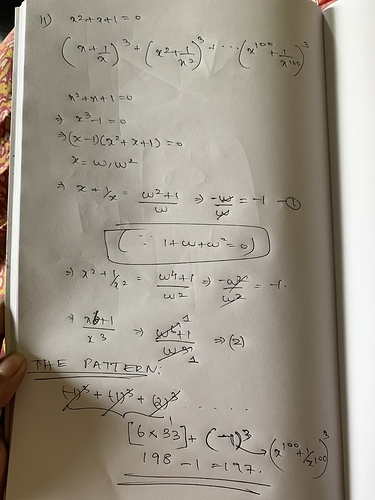 11) x²+x+1=0
(x+1/x)³ + (x²+1/x²)³ + ... (x¹⁰⁰+1/x¹⁰⁰)³
x²+x+1=0
⇒ x³-1=0
⇒(x-1)(x²+x+1)=0
x=ω,ω²
⇒ x+1/x = ω²+1/ω ⇒ -ω/ω = -1 -①
(∵ 1+ω+ω²=0)
⇒ x²+1/x² = ω⁴+1/ω² ⇒ -ω²/ω² = -1.
⇒ x⁶+1/x³ ⇒ ω⁶+1/ω³ ⇒ (2)
THE PATTERN:
(-1)³ + (-1)³ + (2)³ .....
[6×33] + (-1)³ → (x¹⁰⁰+1/x¹⁰⁰)³
198 -1 = 197.